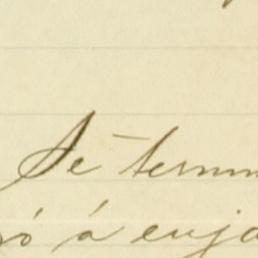 Se termi
ó á enja